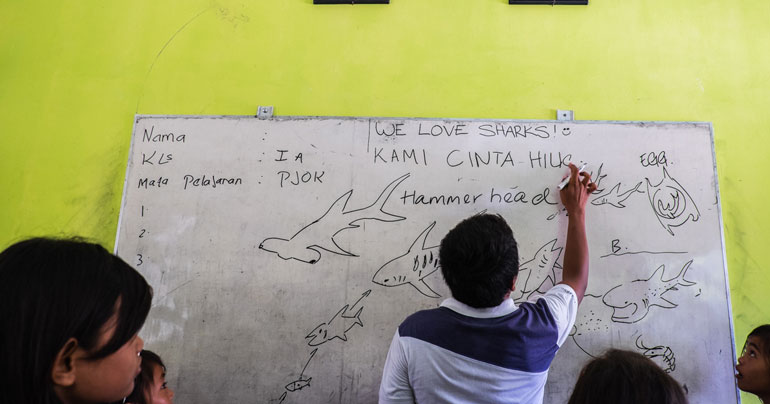 Nama :
KLs : I A
Mata Pelajaran : PJOK
1
2
3
WE LOVE SHARKS!
KAMI CINTA HIU
Hammerhead
EGG
B.